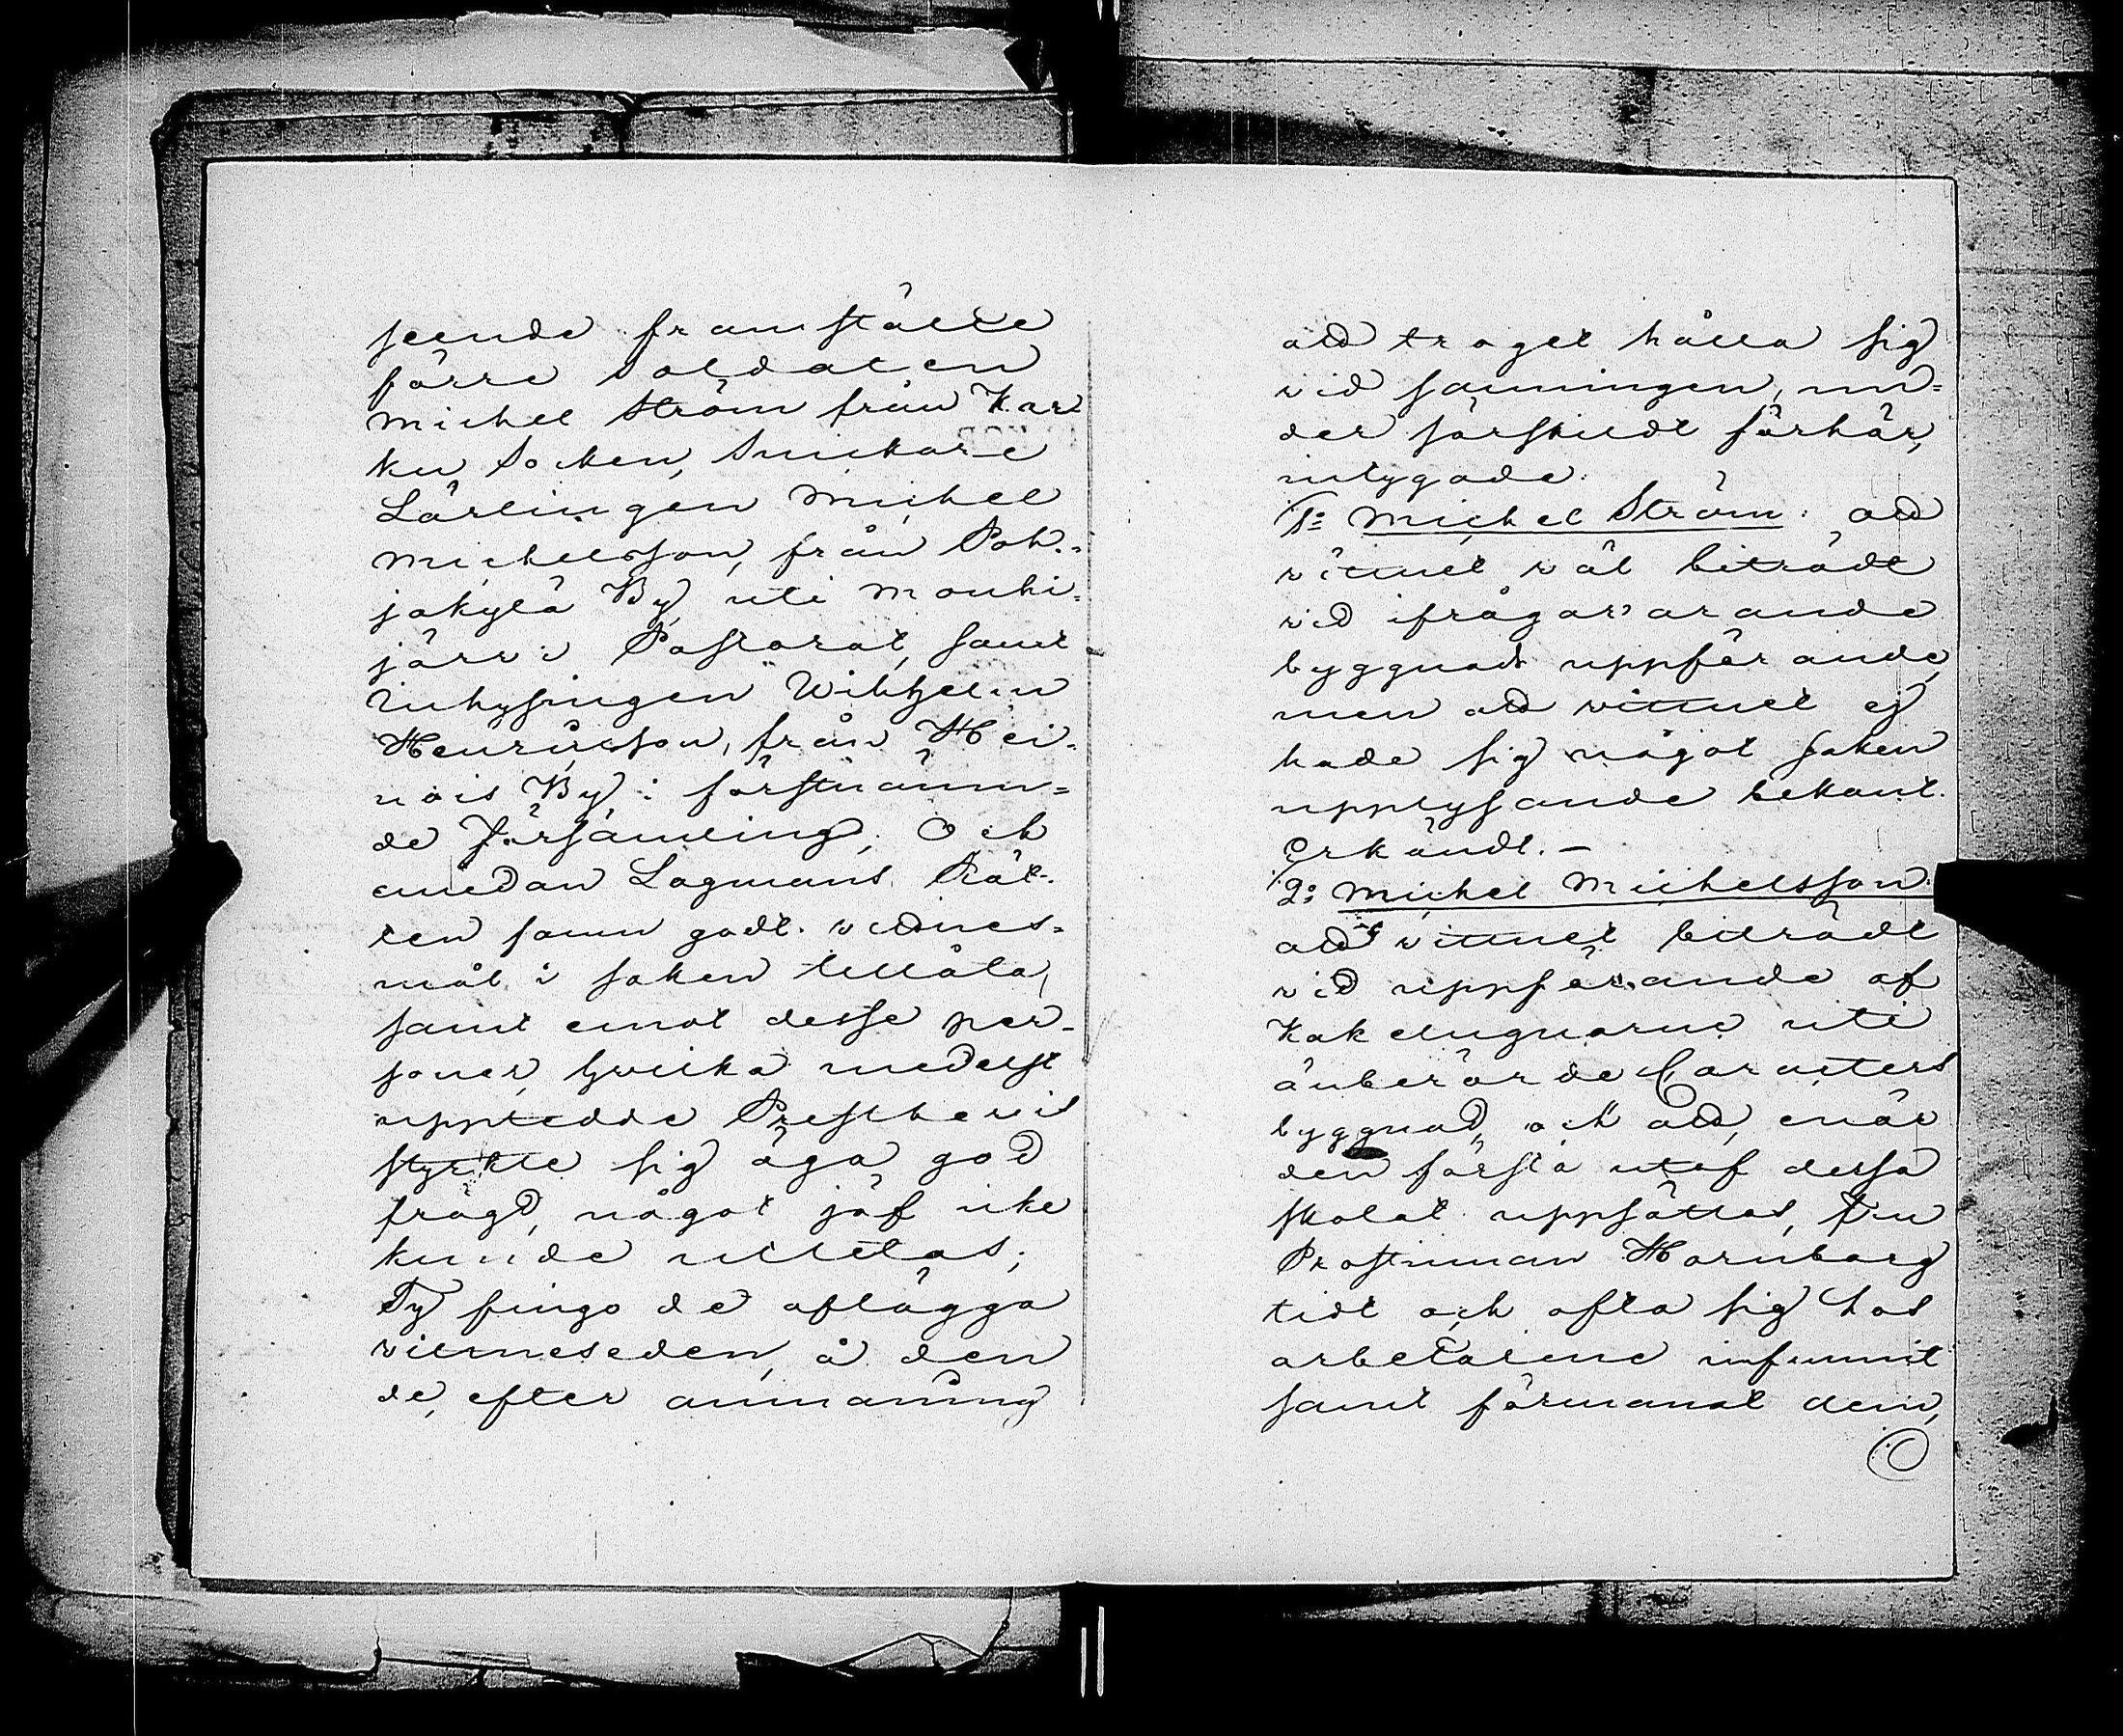 seende framstälte
förre Soldaten
Michel Ström från Kar-
ku Socken, Snickare
Lärlingen Michel
Michelsson, från Poh-
jakylä By uti Mouhi-
järvi Pastorat, samt
Inhysingen Wilhelm
Henricsson, från Hei-
nois By i förstnämn-
de Församling, Och
emedan Lagmans Rät-
ten fann godt vittnes-
mål i saken tillåta,
samt emot desse per-
soner, hvilka medelst
upptedde Prestbevis
styrkte sig äga god
frägd, något jäf icke
kunde utletas;
Ty fingo de aflägga
vittneseden, å den
de, efter anmaning
att troget hålla sig
vid sanningen, un-
der särskildt förhör,
intygade:
1o Michel Ström: att
vittnet väl biträdt
vid ifrågavarande
byggnads uppförande,
men att vittnet ej
hade sig något saken
upplysande bekant.
Erkändt. –
2o Michel Michelsson:
att vittnet biträdt
vid uppförande af
Kakelugnarne uti
änberörde Caracters
byggnad, och att, enär
den första utaf dessa
skolat uppsättas, Fru
Prostinnan Hornborg
tidt och ofta sig hos
arbetarene infunnit
samt förmanat dem,